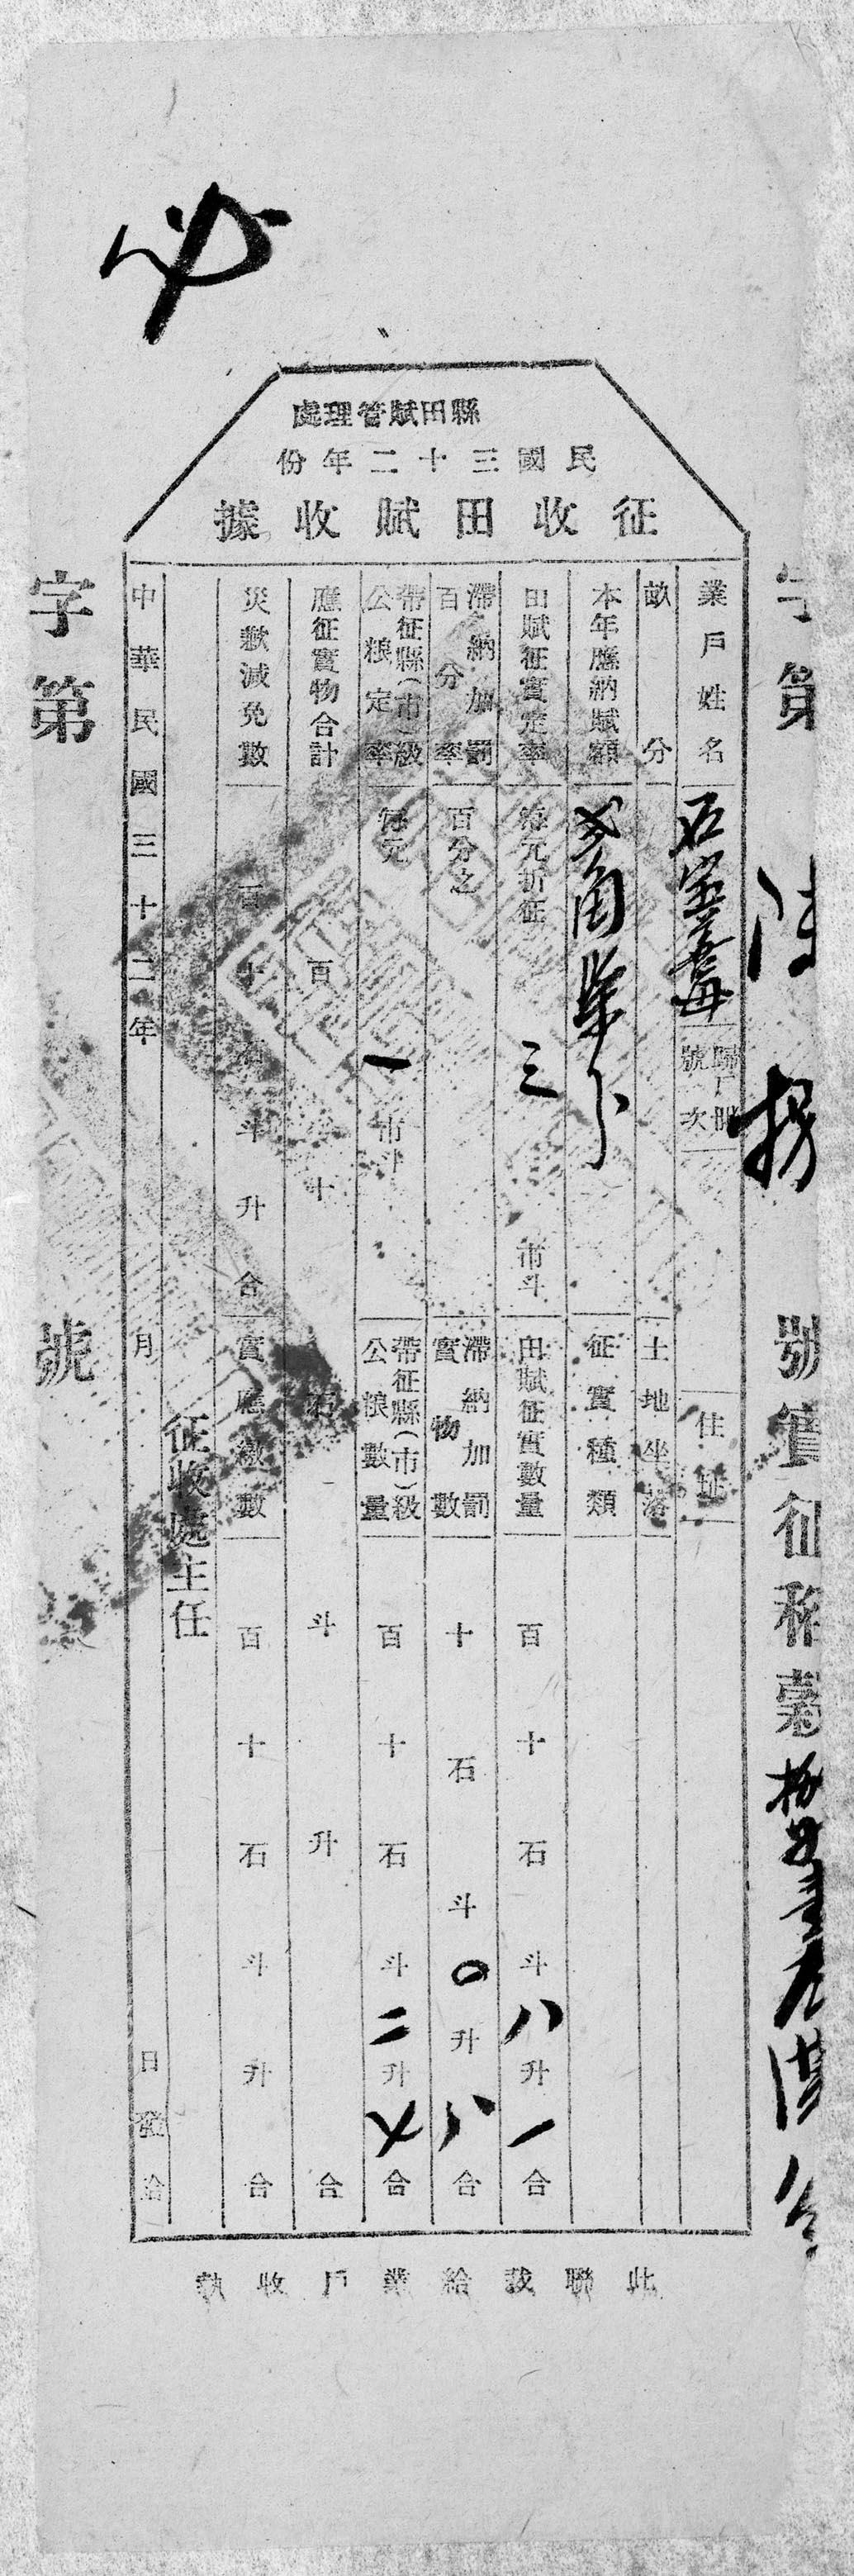 縣田賦管理處
民國三十二年份
征收田賦收據
字第 號實征稻穀
業戶姓名 石 歸戶冊號次 住址
畝分 土地坐落
本年應納賦額 角 征實種類
田賦征實定率 每元折征 三 市斗 田賦征實數量 百十石斗八升一合
滯納加罰百分率 百分之 滯納加罰實物數 十石斗〇升八合
帶征縣(市)級公粮定率 每元 一 市斗 帶征縣(市)級公粮數量 百十石斗二升七合
應征實物合計 百十石斗升合
災歉減免數 百十石斗升合 實應繳數 百十石斗升合
征收處主任
中華民國三十二年 月 日發給
字第 號
此聯裁給業戶收執